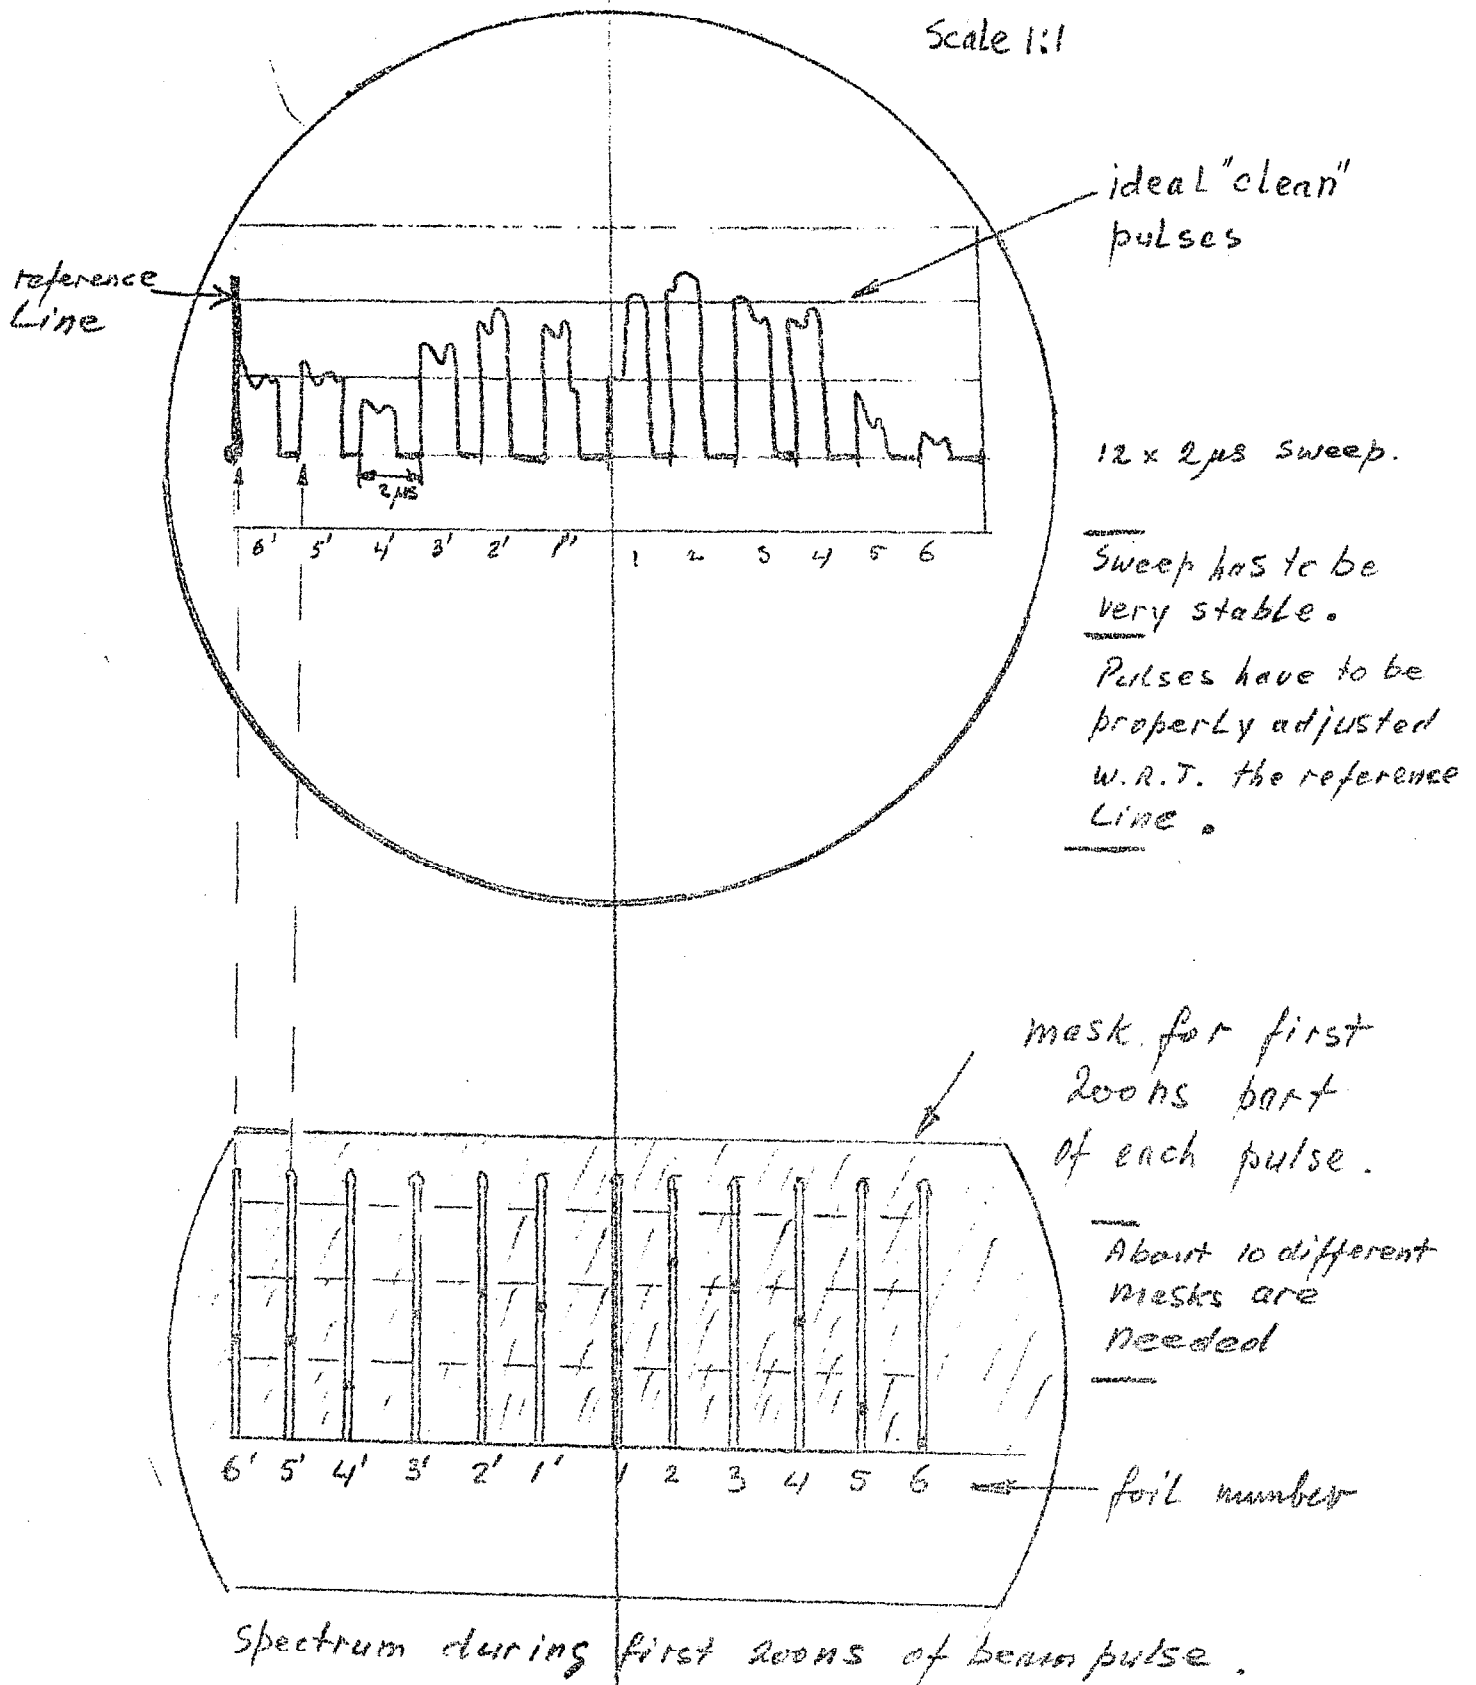 Scale 1:1
ideal "clean"
pulses
reference
Line
2µs
12 x 2µs sweep.
6' 5' 4' 3' 2' 1' 1 2 3 4 5 6
Sweep has to be
very stable.
Pulses have to be
properly adjusted
W.R.T. the reference
Line.
mask for first
200ns part
of each pulse.
About 10 different
masks are
needed
6' 5' 4' 3' 2' 1' 1 2 3 4 5 6
foil number
Spectrum during first 200ns of beam pulse.